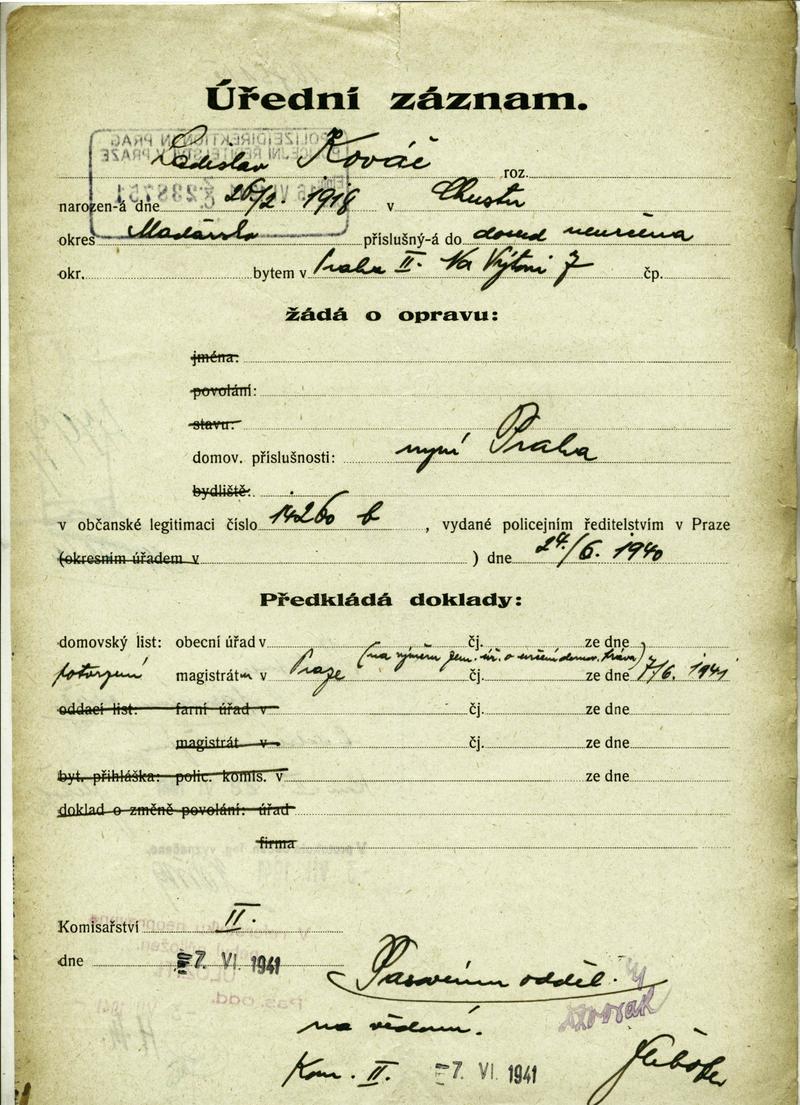 Úřední záznam.
Ladislav Kováč roz.
narozen-á dne 26/2. 1918 v Chustu
okres Maďarsko příslušný-á do domov. neurčena
okr. bytem v Praha II. Na Výtoni 7 čp.
žádá o opravu:
jména:
povolání:
stavu:
domov. příslušnosti: nyní Praha
bydliště:
v občanské legitimaci číslo 14260 b , vydané policejním ředitelstvím v Praze
(okresním úřadem v ) dne 24./6. 1940
Předkládá doklady:
domovský list: obecní úřad v čj. ze dne
potvrzení magistrát v Praze (na výměru zem. úř. o určení domov. práva) čj. ze dne 7/6. 1941
oddací list: farní úřad v čj. ze dne
magistrát v čj. ze dne
byt. přihláška: polic. komis. v ze dne
doklad o změně povolání: úřad
firma
Komisařství II.
dne 7. VI. 1941
Pasovému odděl.
na vědomí.
Kom. II. 7. VI. 1941